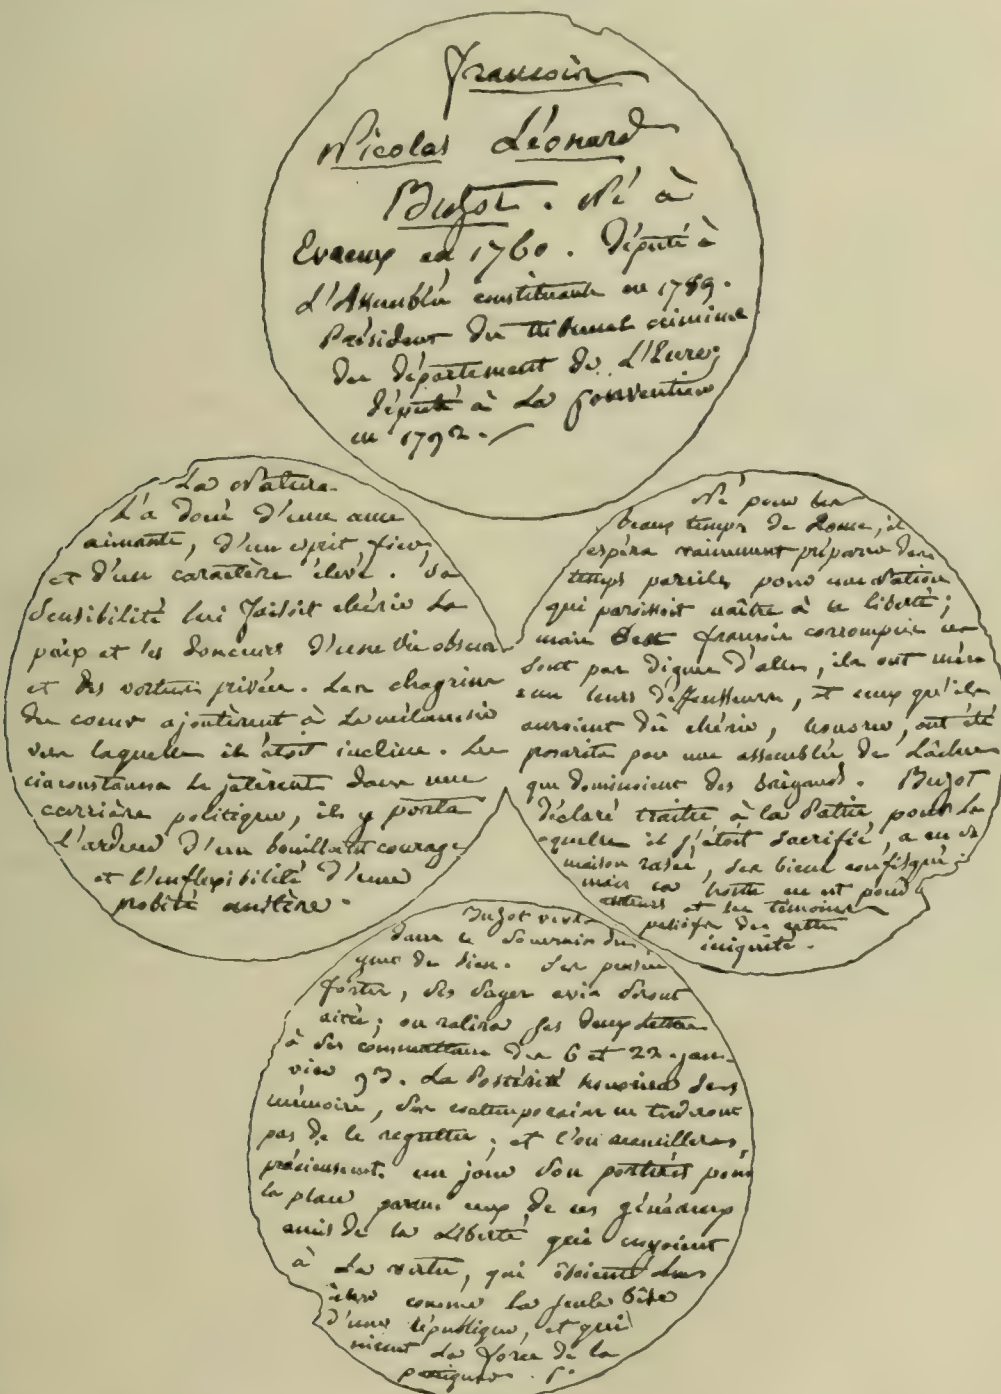 François
Nicolas Léonard
Buzot. Né à
Evreux en 1760. Député à
L'Assemblée constituante en 1789.
Président du tribunal criminel
du département de L'Eure;
député à La Convention
en 1792.
La Nature
L'a doué d'une ame
aimante, d'un esprit fier,
et d'un caractère élevé. Sa
Sensibilité lui faisoit chérir La
paix et les douceurs d'une vie obscure
et des vertus privées. Les chagrins
du coeur ajoutèrent à La mélancolie
vers laquelle il étoit incliné. Les
circonstances Le jetèrent dans une
carrière politique, il y porta
L'ardeur d'un bouillant courage
et L'inflexibilité d'une
probité austère.
Né pour les
beaux temps de Rome, il
espéra vainement préparer des
temps pareils pour une Nation
qui paroissoit naître à la liberté;
mais français corrompus ne
sont pas dignes d'elle, ils ont
leurs deffenseurs, et ceux qu'ils
auroient dû chérir, honorer, ont été
proscrits par une assemblée de Lâches
que dominoient des brigands. Buzot
déclaré traitre à la Patrie pour La
quelle il s'étoit Sacrifié, a eu sa
maison rasée, ses biens confisqués;
mais la honte en est pour
auteurs et les témoins
de cette
iniquité.
Buzot vivra
dans le Souvenir des
gens de bien. Ses pensées
fortes, Ses Sages avis Seront
cités; on relira ses deux Lettres
à Ses commettans des 6 et 22 jan-
vier 93. La Postérité honorera Sa
mémoire, Ses contemporains ne tarderont
pas de le regretter; et l'on recueillera
précieusement un jour Son portrait pour
le placer parmi ceux de ces généreux
amis de la Liberté qui croyoient
à La vertu, qui osoient La
comme la seule bâse
d'une république, et qui
La force de la
pratiquer.